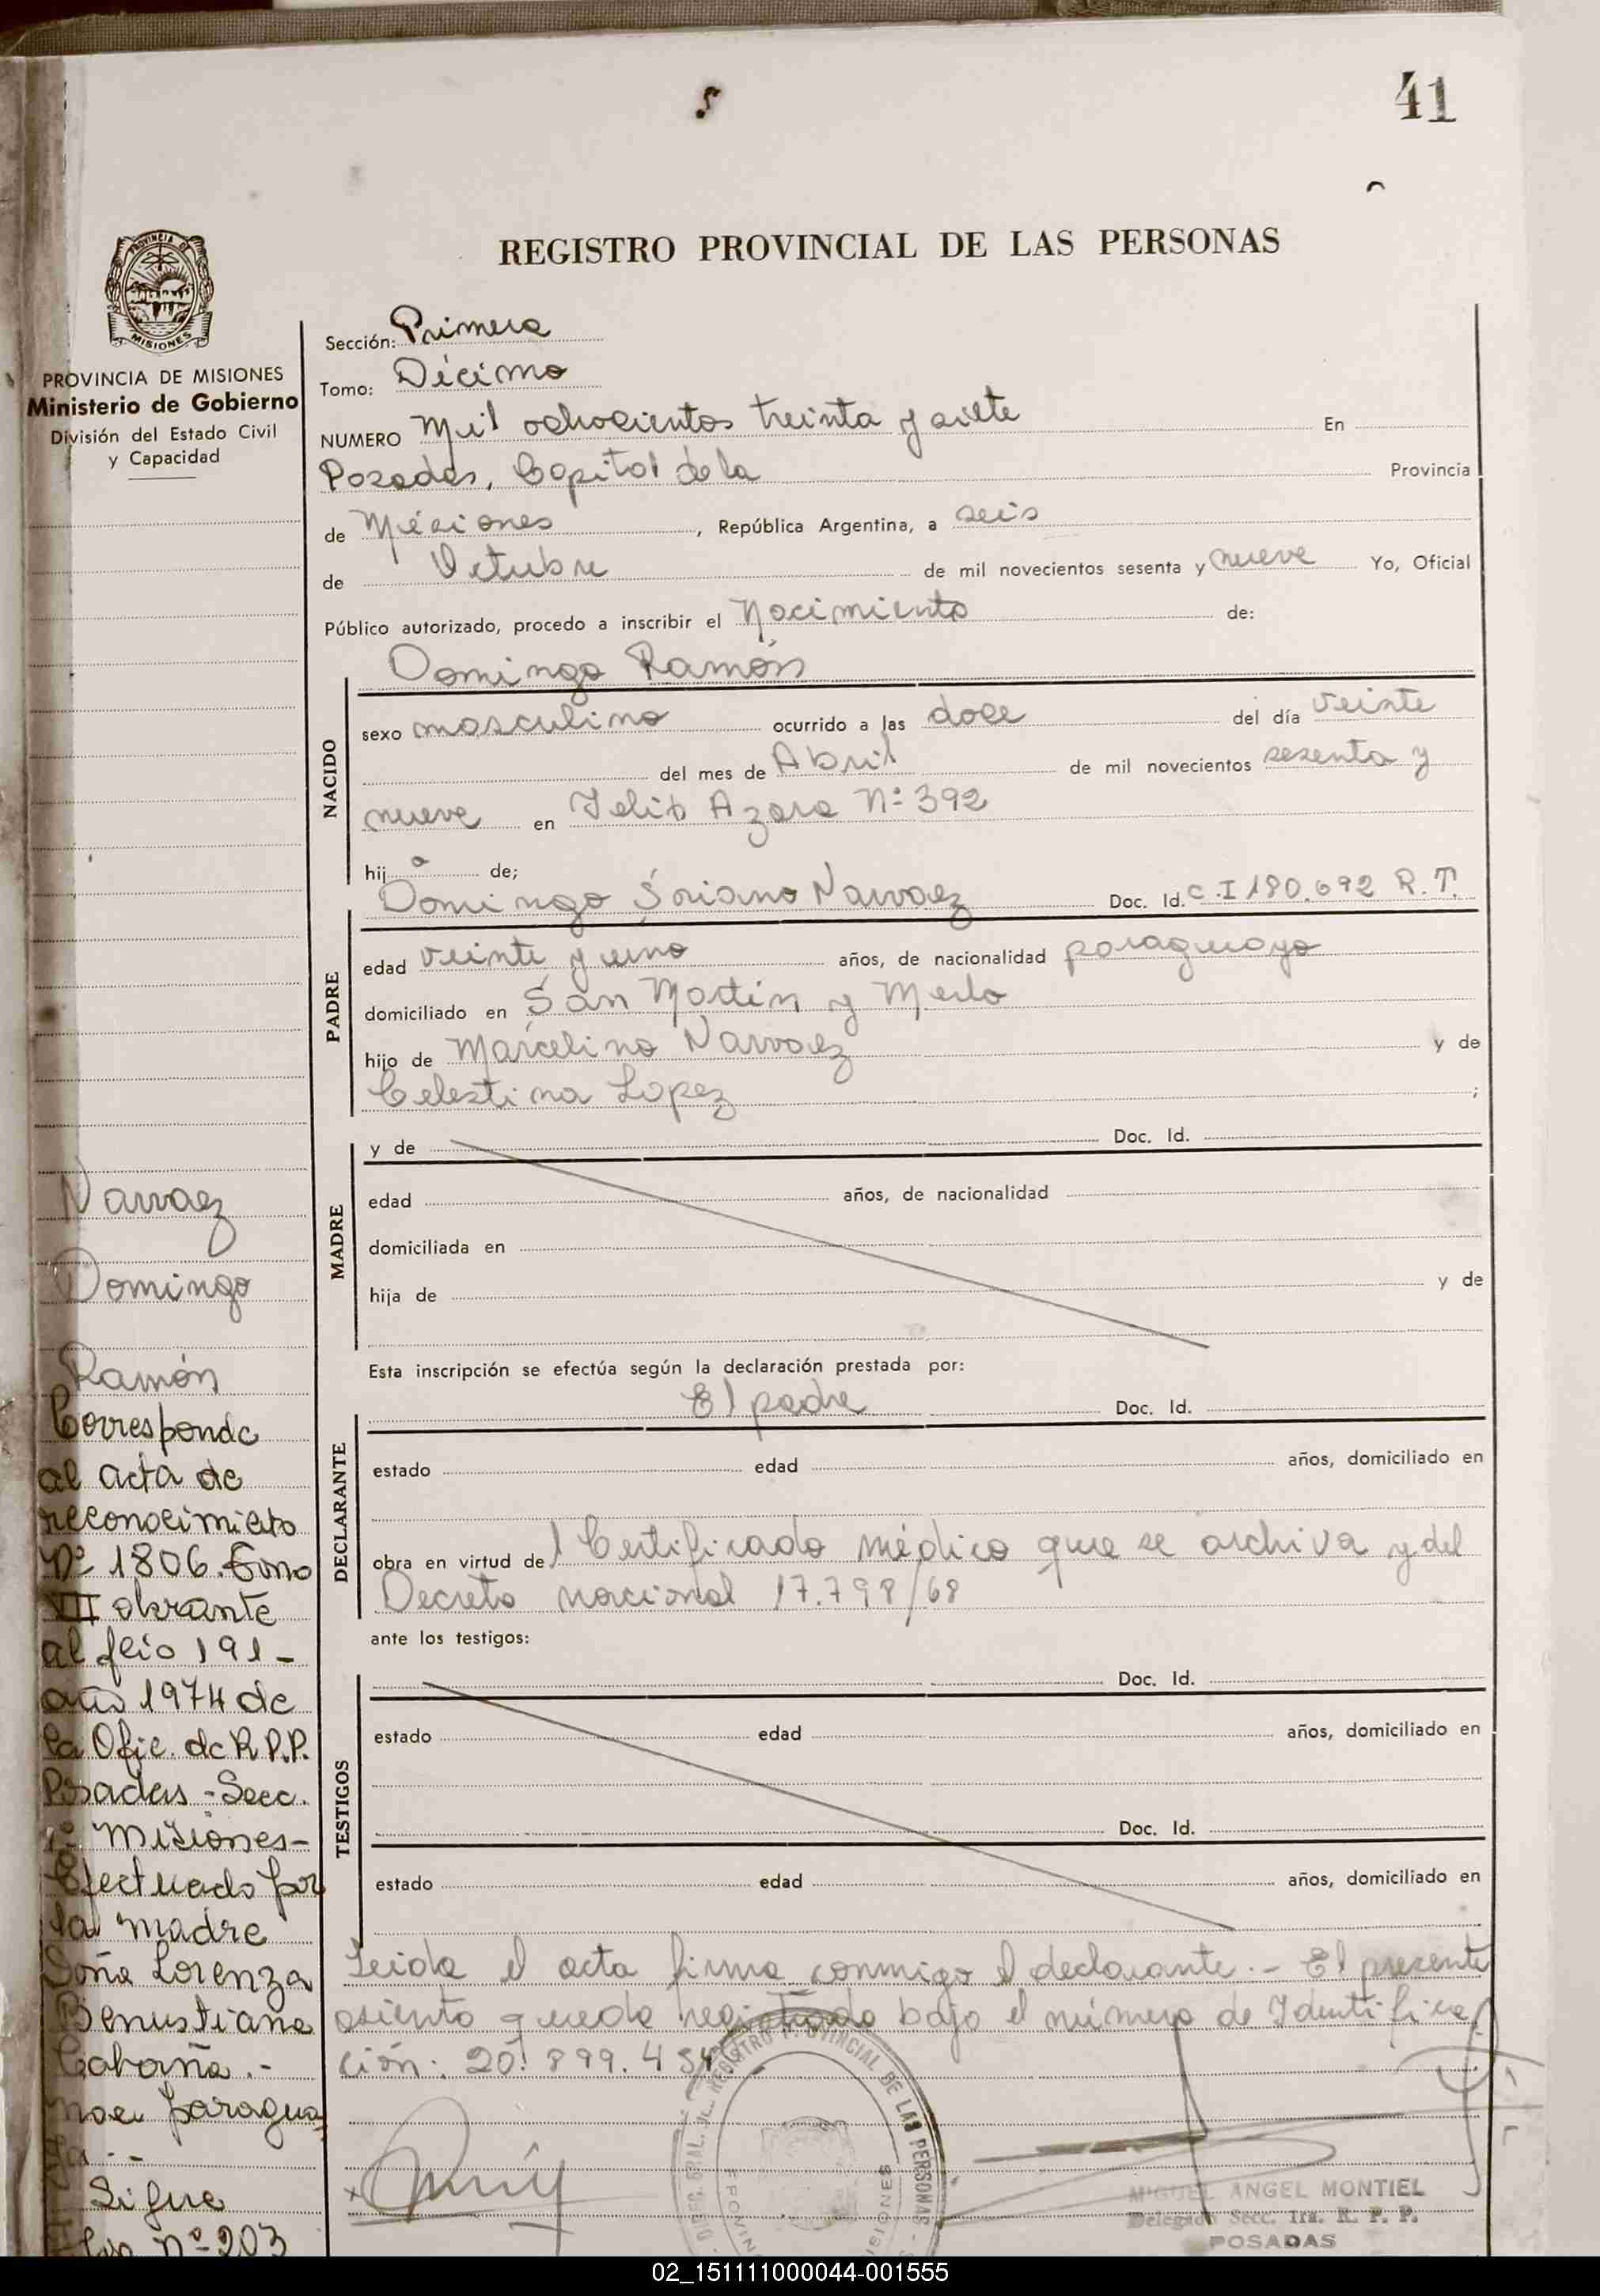 41
REGISTRO PROVINCIAL DE LAS PERSONAS
PROVINCIA DE
MISIONES
PROVINCIA DE MISIONES
Ministerio de Gobierno
División del Estado Civil
y Capacidad
Sección: Primera
Tomo: Décimo
NUMERO Mil ochocientos treinta y siete En
Posadas, Capital de la Provincia
de Misiones, República Argentina, a seis
de Octubre de mil novecientos sesenta y nueve Yo, Oficial
Público autorizado, procedo a inscribir el Nacimiento de:
Domingo Ramón
NACIDO
sexo masculino ocurrido a las doce del día veinte
del mes de Abril de mil novecientos sesenta y
nueve en Felix Azara Nº 392
hijo de;
Domingo Soriano Narvaez Doc. Id. C.I 180.692 R.T.
PADRE
edad veinte y uno años, de nacionalidad paraguayo
domiciliado en San Martín y Merlo
hijo de Marcelino Narvaez y de
Celestina Lopez ;
y de Doc. Id.
MADRE
edad años, de nacionalidad
domiciliada en
hija de y de
Esta inscripción se efectúa según la declaración prestada por:
El padre Doc. Id.
DECLARANTE
estado edad años, domiciliado en
obra en virtud del Certificado médico que se archiva y del
Decreto nacional 17.798/68
ante los testigos:
Doc. Id.
TESTIGOS
estado edad años, domiciliado en
Doc. Id.
estado edad años, domiciliado en
Leida el acta firma conmigo el declarante.- El presente
asiento queda registrado bajo el número de Identifica
ción: 20.899.454
Narvaez
Domingo
Ramón
Corresponde
al acta de
reconocimiento
Nº 1806. Tomo
VII obrante
al folio 191-
año 1974 de
la Ofic. de R.P.P.
Posadas - Secc.
1º Misiones-
Efectuado por
la madre
Doña Lorenza
Benustiana
Cabaña.-
nac. paragua
ya.-
Sigue
Nº 203
REGISTRO PROVINCIAL DE LAS PERSONAS
MIGUEL ANGEL MONTIEL
Delegado Secc. 1ra. R. P. P.
POSADAS
02_151111000044-001555